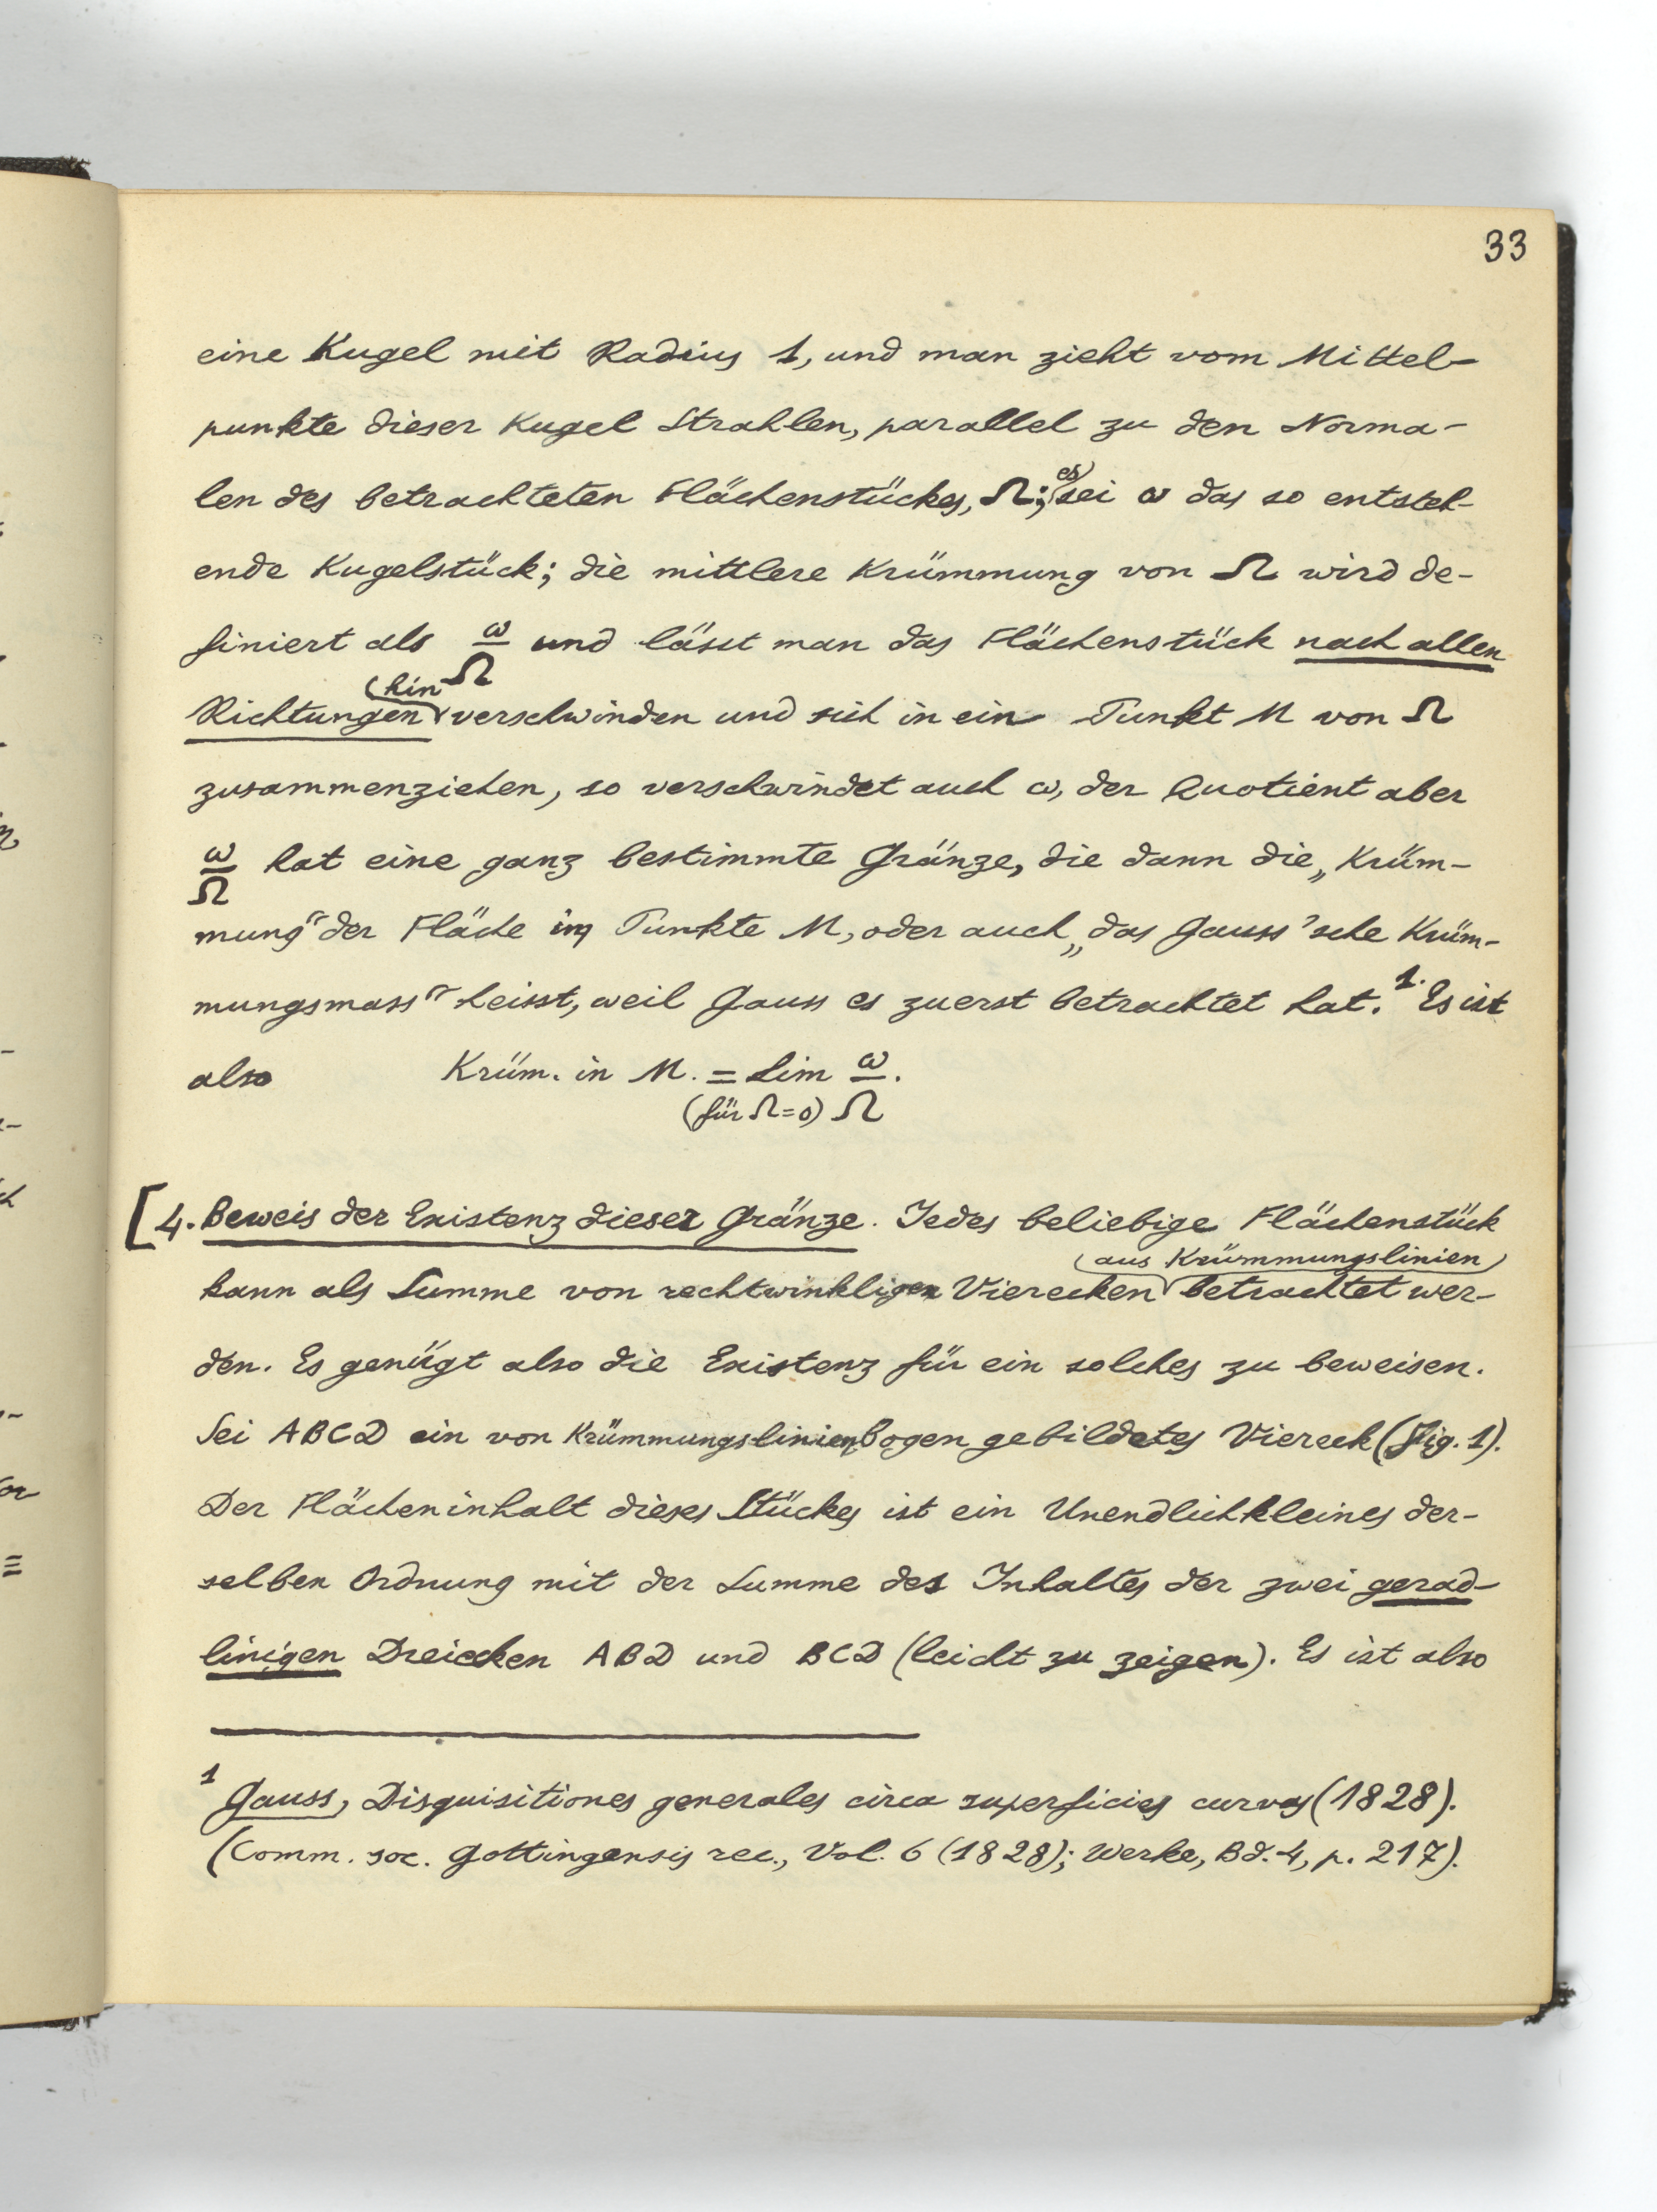 33
eine Kugel mit Radius 1, und man zieht vom Mittel-
punkte dieser Kugel Strahlen, parallel zu den Norma-
len des betrachteten Flächenstückes, Ω; es sei ω das so entsteh-
ende Kugelstück; die mittlere Krümmung von Ω wird de-
finiert als ω/Ω und lässt man das Flächenstück nach allen
Richtungen hin verschwinden und sich in ein Punkt M von Ω
zusammenziehen, so verschwindet auch ω, der Quotient aber
ω/Ω hat eine ganz bestimmte Gränze, die dann die „Krüm-
mung“ der Fläche im Punkte M, oder auch „das Gauss'sche Krüm-
mungsmass“ heisst, weil Gauss es zuerst betrachtet hat.¹ Es ist
also Krüm. in M. = Lim ω/Ω.
(für Ω=0)
[4. Beweis der Existenz dieser Gränze. Jedes beliebige Flächenstück
kann als Summe von rechtwinkligen Vierecken (aus Krümmungslinien) betrachtet wer-
den. Es genügt also die Existenz für ein solches zu beweisen.
Sei ABCD ein von Krümmungslinienbogen gebildetes Viereck (Fig. 1).
Der Flächeninhalt dieses Stückes ist ein Unendlichkleines der-
selben Ordnung mit der Summe des Inhaltes der zwei gerad-
linigen Dreiecken ABD und BCD (leicht zu zeigen). Es ist also
¹ Gauss, Disquisitiones generales circa superficies curvas (1828).
(Comm. soc. Gottingensis rec., Vol. 6 (1828); Werke, Bd. 4, p. 217).